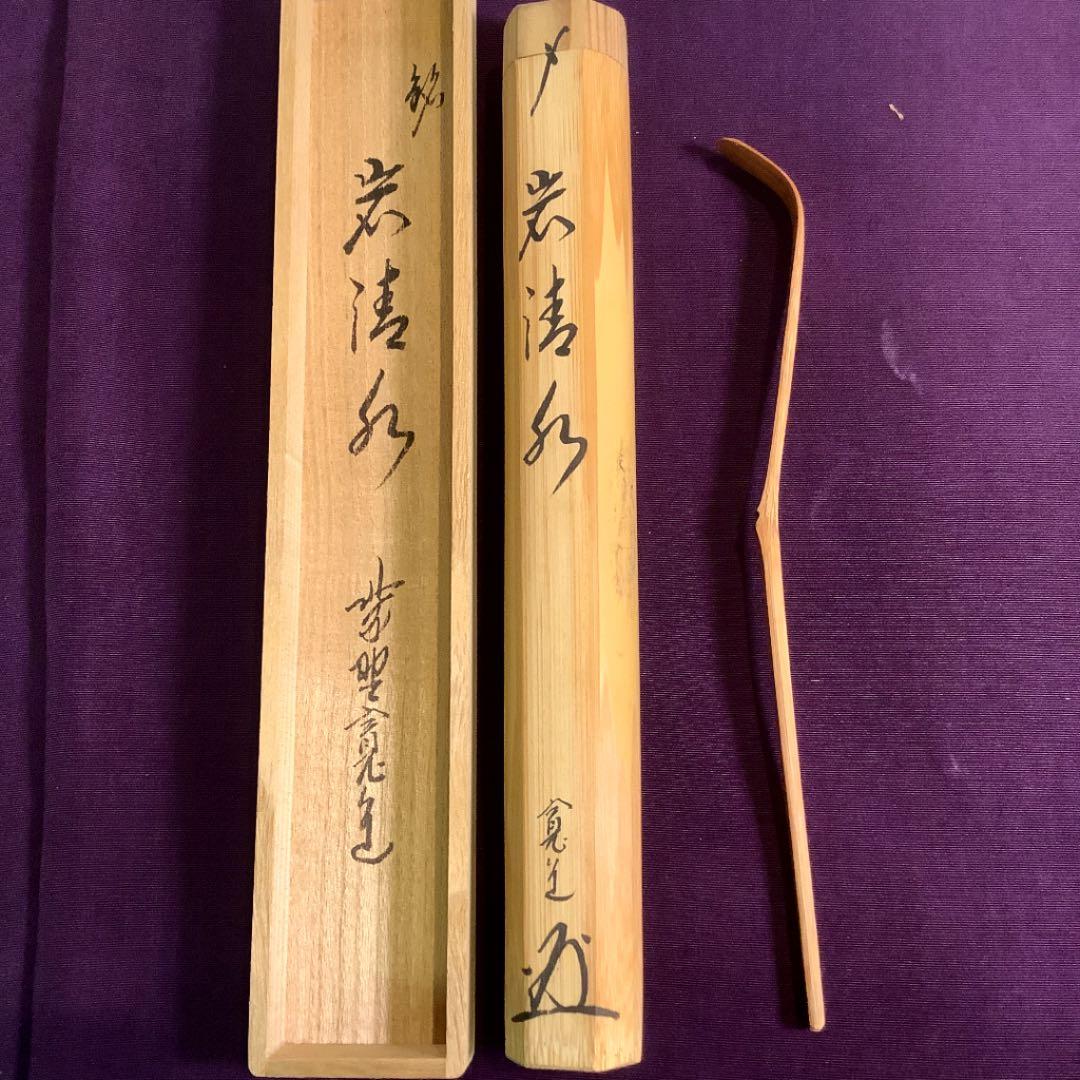 銘
岩清水
紫野寛道
〆
岩清水
寛道